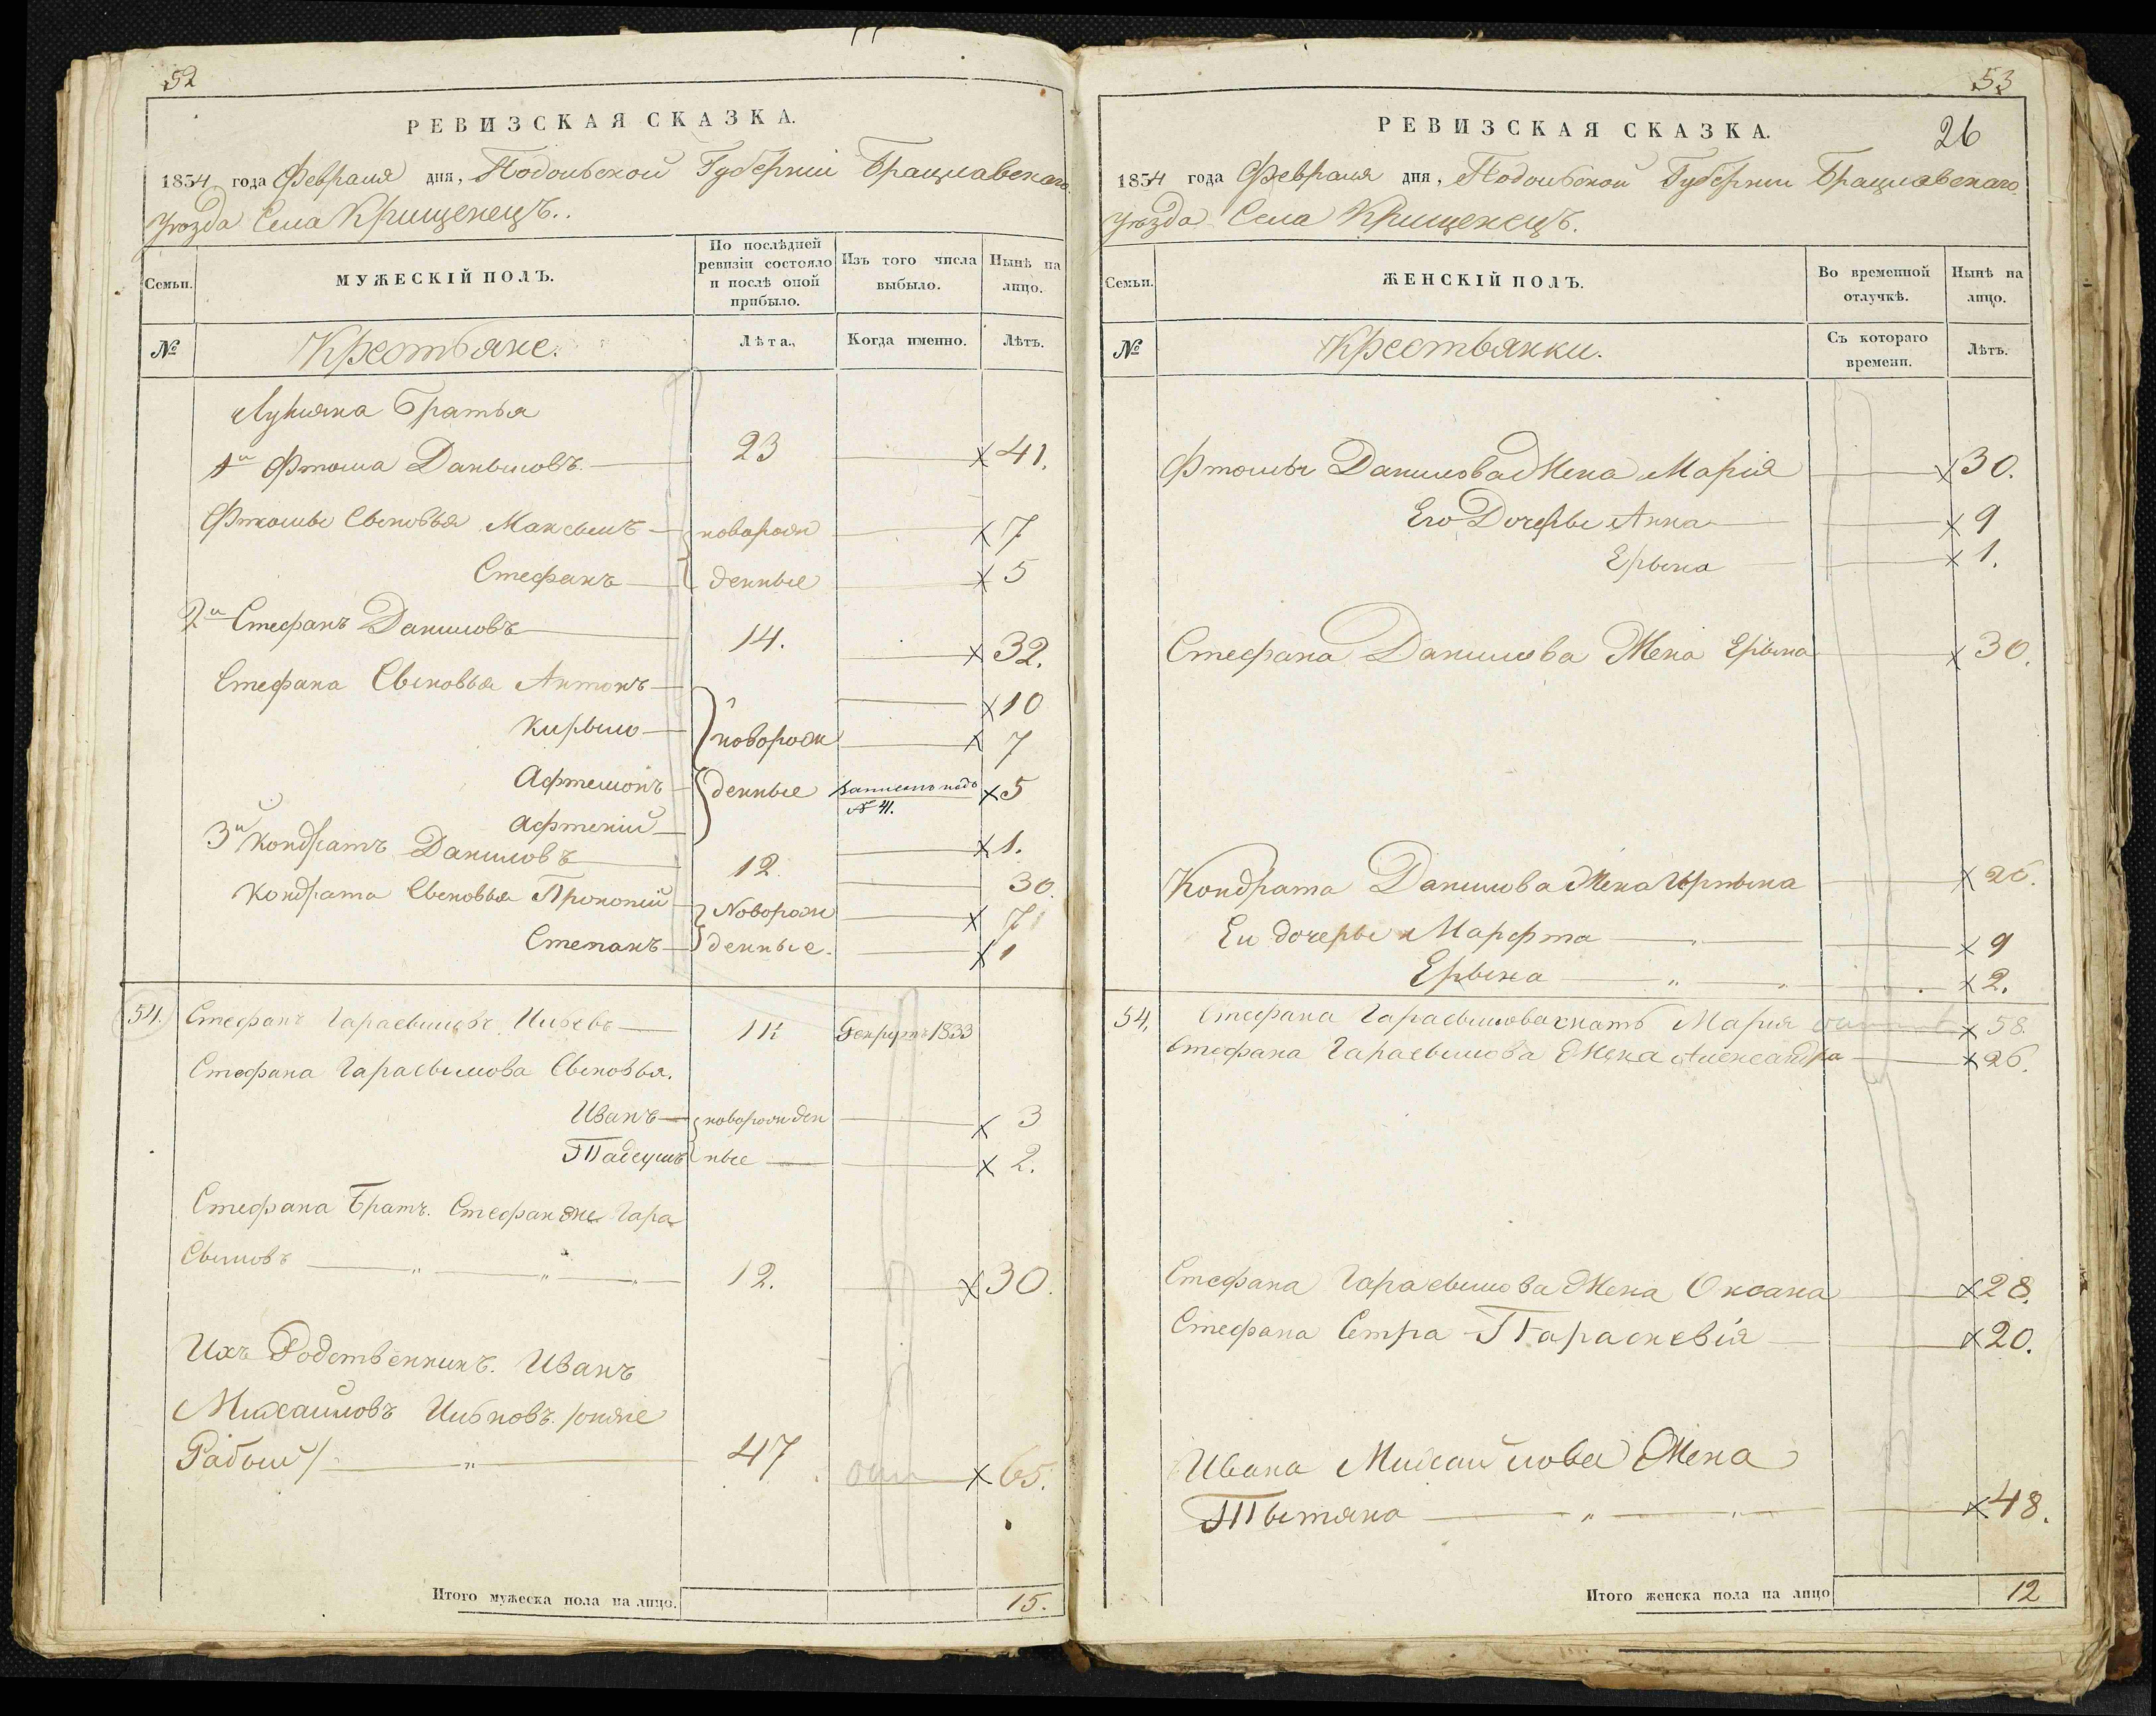 52
РЕВИЗСКАЯ СКАЗКА.
1834 года Февраля дня, Подольской Губерніи Брацлавскаго
Уѣзда Села Крищенецъ.
Семьи.
МУЖЕСКІЙ ПОЛЪ.
По послѣдней ревизіи состояло и послѣ оной прибыло.
Изъ того числа выбыло.
Нынѣ на лицо.
№
Крестьяне.
Лѣта.
Когда именно.
Лѣтъ.
Лукіяна Братья
1й Фтома Даныловъ 23 х 41.
Фтомы Сыновья Максымъ новорож х 7
Стефанъ денные х 5
2й Стефанъ Даниловъ 14. х 32.
Стефана Сыновья Антонъ х 10
Кирыло новорож х 7
Афтемонъ денные записанъ подъ № 41. х 5
Афтеній х 1.
3й Кондратъ Даниловъ 12 30.
Кондрата Сыновья Прокопій Новорож х 7
Степанъ денные. х 1
54. Стефанъ Гарасымовъ 1833
Стефана Гарасымова Сыновья.
Иванъ новорожден х 3
Тадеушъ ные х 2.
Стефана Братъ. Стефан же Гара
сымовъ 12. х 30.
Ихъ Родственникъ. Иванъ
Михайловъ /онже
Рабый/ 47 х 65.
Итого мужеска пола на лицо. 15.
53
26
РЕВИЗСКАЯ СКАЗКА.
1834 года Февраля дня, Подольской Губерніи Брацлавскаго
Уѣзда Села Крищенецъ.
Семьи.
ЖЕНСКІЙ ПОЛЪ.
Во временной отлучкѣ.
Нынѣ на лицо.
№
Крестьянки.
Съ котораго времени.
Лѣтъ.
Фтомы Данилова Жена Марія х 30.
Его Дочеры Анна х 9
Ерына х 1.
Стефана Данилова Жена Ерына х 30.
Кондрата Данилова Жена х 26.
Еи дочеры Марфта х 9
Ерына х 2.
54. Стефана Гарасымова мать Мария х 58.
Стефана Гарасымова Жена Александра х 26.
Стефана Гарасымова Жена Оксана х 28.
Стефана Сетра Параскевія х 20.
Ивана Михайлова Жена
Тытяна х 48.
Итого женска пола на лицо 12